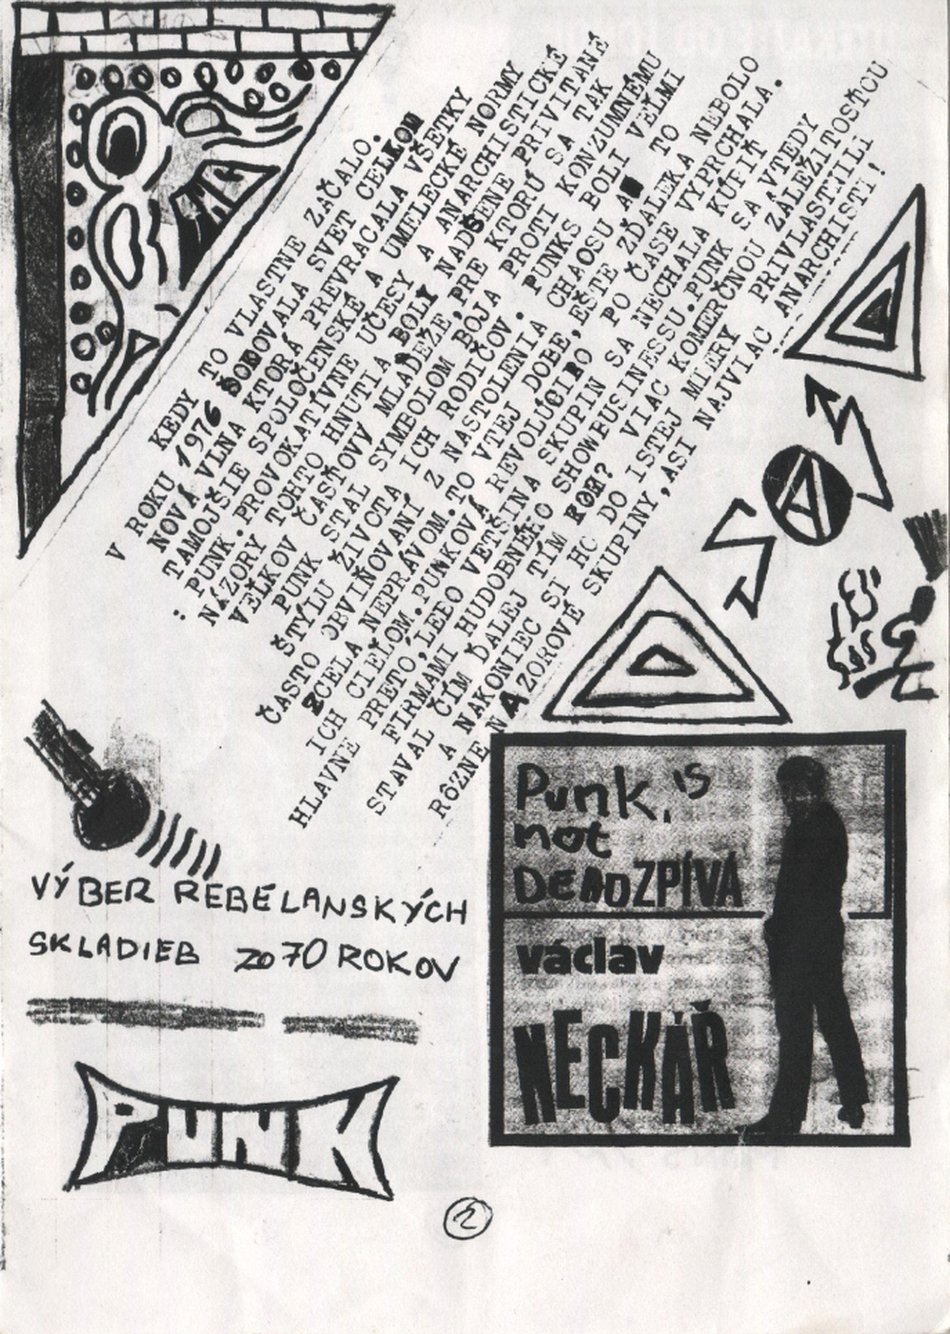 KEDY TO VLASTNE ZAČALO.
V ROKU 1976 ŠOKOVALA SVET CELKOM
NOVÁ VLNA KTORÁ PREVRACALA VŠETKY
TAMOJŠIE SPOLOČENSKÉ A UMELECKÉ NORMY
: PUNK. PROVOKATÍVNE ÚČESY A ANARCHISTICKÉ
NÁZORY TOHTO HNUTIA BOLI NADŠENE PRIVÍTANÉ
VEĽKOV ČASŤOV MLÁDEŽE,PRE KTORÚ SA TAK
PUNK STAL SYMBOLOM BOJA PROTI KONZUMNÉMU
ŠTÝLU ŽIVOTA ICH RODIČOV. PUNKS BOLI VEĽMI
ČASTO OBVIŇOVANÍ Z NASTOLENIA CHAOSU A TO
ZCELA NEPRÁVOM.TO VTEJ DOBE,EŠTE ZĎALEKA NEBOLO
ICH CIEĽOM.PUNKOVÁ REVOLÚCIA PO ČASE VYPRCHALA.
HLAVNE PRETO,LEBO VETŠINA SKUPÍN SA NECHALA KÚPIŤ
FIRMAMI HUDOBNÉHO SHOWBUSINESSU.PUNK SA VTEDY
STAVAL ČÍM ĎALEJ TÍM VIAC KOMERČNOU ZÁLEŽITOSŤOU
A NAKONIEC SI HO DO ISTEJ MIERY PRIVLASTNILI
RÔZNE NÁZOROVÉ SKUPINY,ASI NAJVIAC ANARCHISTI!
VÝBER REBELANSKÝCH
SKLADIEB ZO 70 ROKOV
PUNK
Punk is
not
DEADZPÍVÁ
václav
NECKÁŘ
2